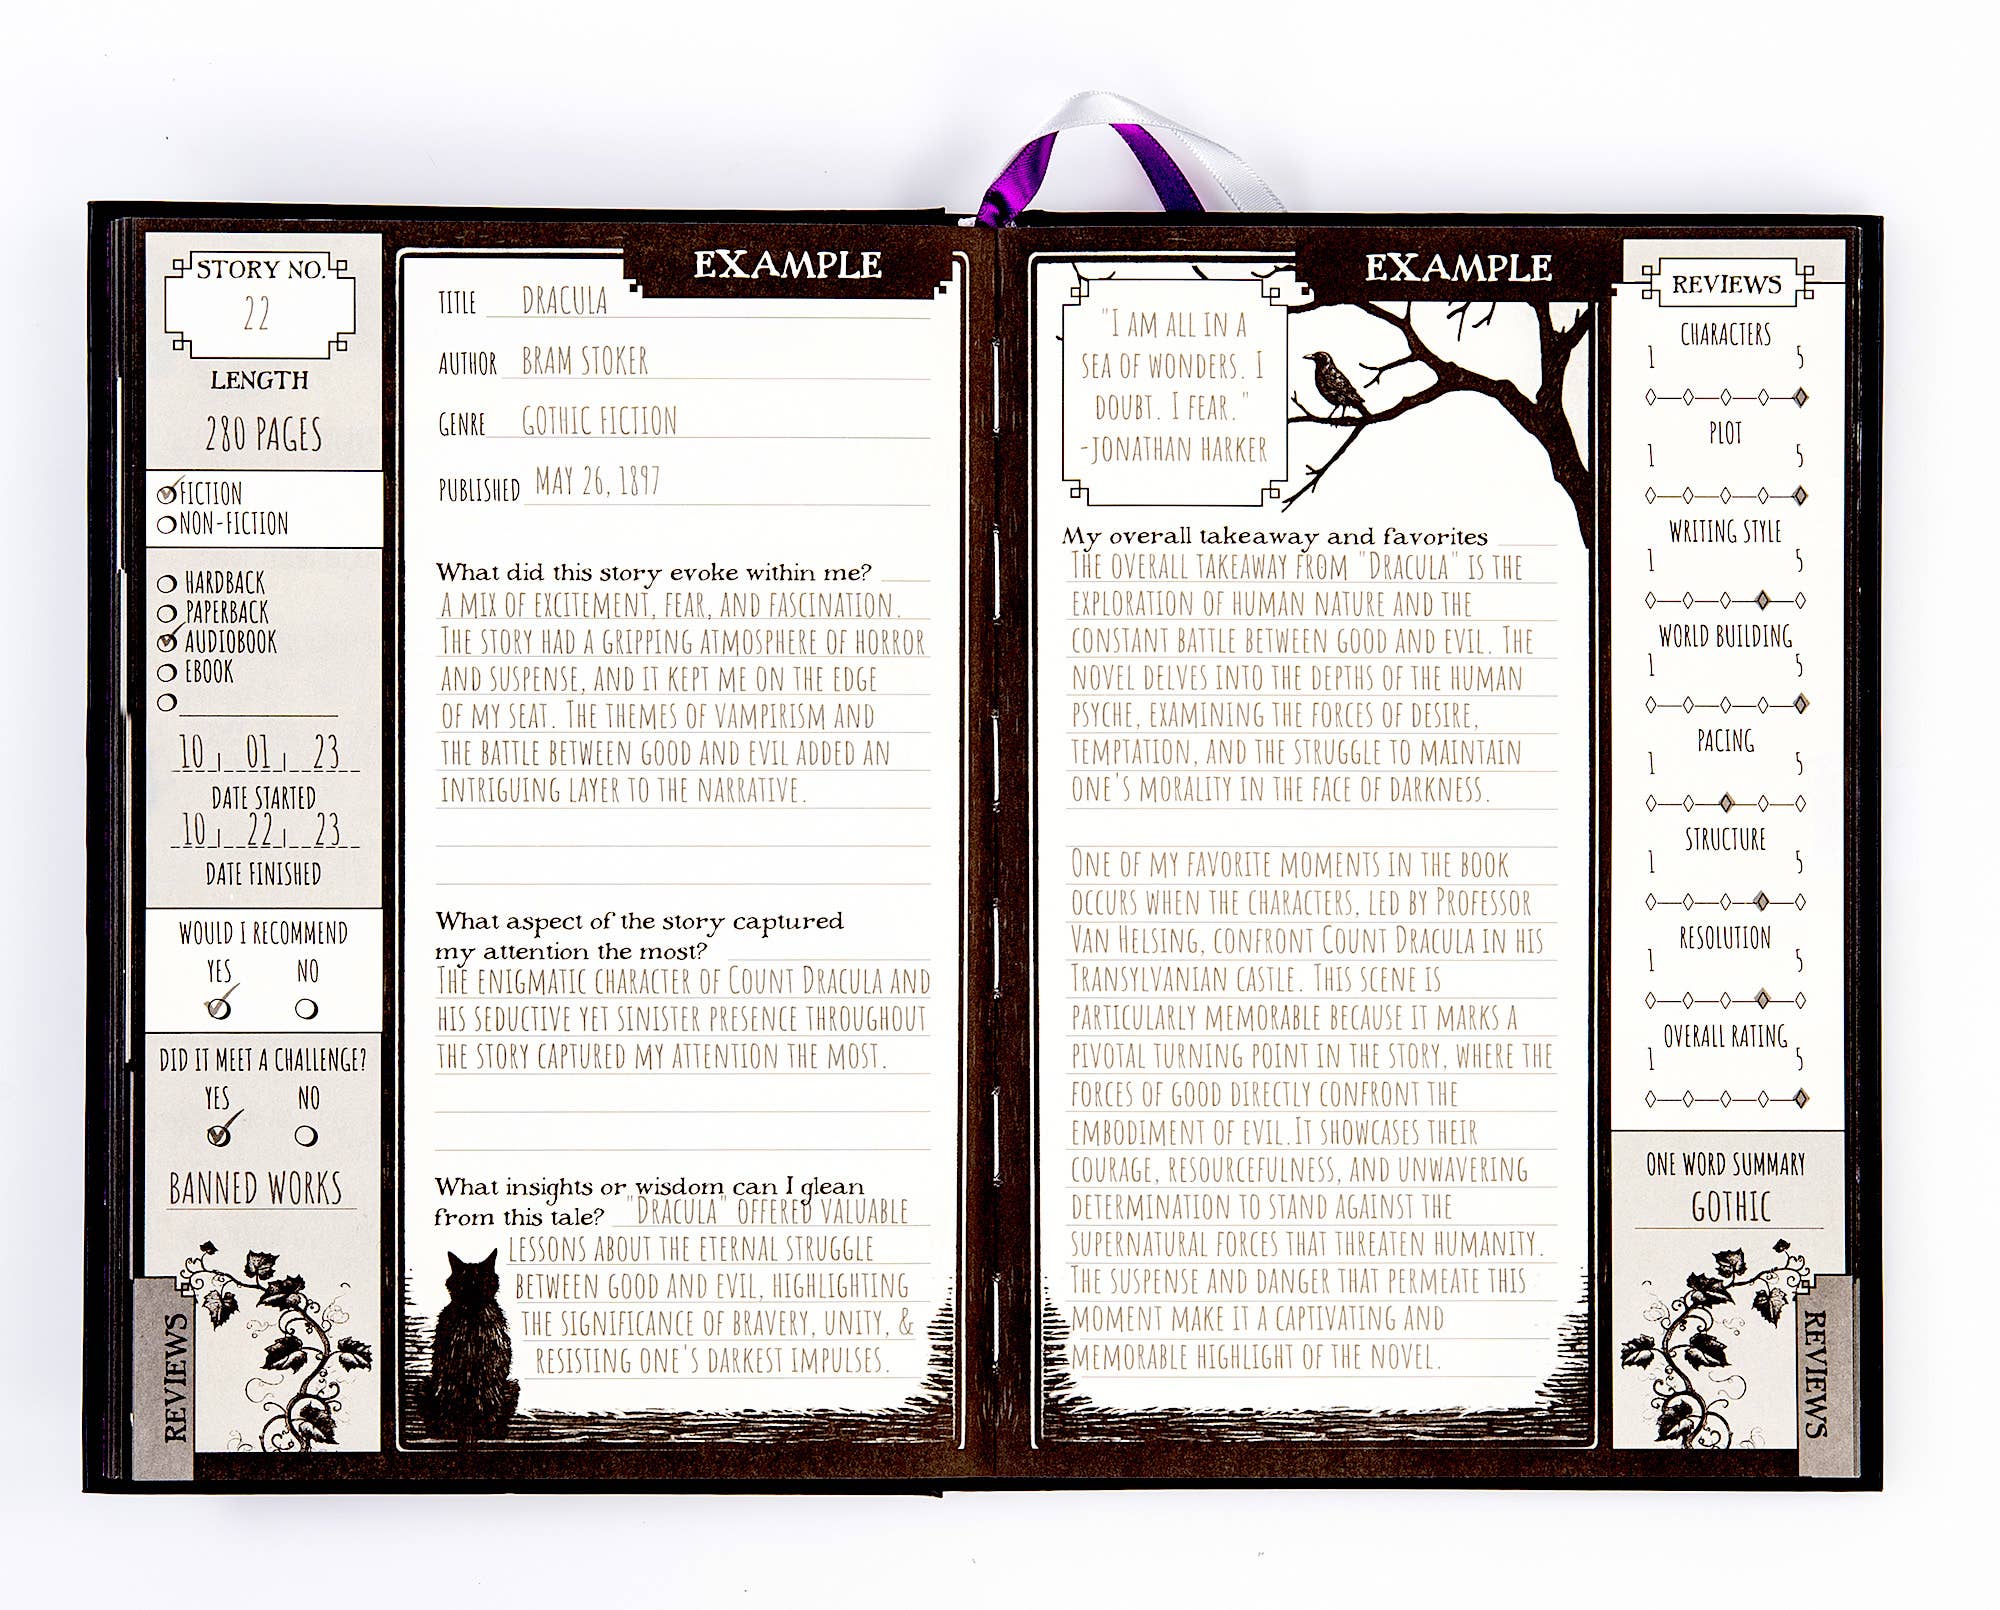 STORY NO.
22
LENGTH
280 PAGES
FICTION
NON-FICTION
HARDBACK
PAPERBACK
AUDIOBOOK
EBOOK
10 01 23
DATE STARTED
10 22 23
DATE FINISHED
WOULD I RECOMMEND
YES NO
DID IT MEET A CHALLENGE?
YES NO
BANNED WORKS
REVIEWS
EXAMPLE
TITLE DRACULA
AUTHOR BRAM STOKER
GENRE GOTHIC FICTION
PUBLISHED MAY 26, 1897
What did this story evoke within me?
A MIX OF EXCITEMENT, FEAR, AND FASCINATION.
THE STORY HAD A GRIPPING ATMOSPHERE OF HORROR
AND SUSPENSE, AND IT KEPT ME ON THE EDGE
OF MY SEAT. THE THEMES OF VAMPIRISM AND
THE BATTLE BETWEEN GOOD AND EVIL ADDED AN
INTRIGUING LAYER TO THE NARRATIVE.
What aspect of the story captured
my attention the most?
THE ENIGMATIC CHARACTER OF COUNT DRACULA AND
HIS SEDUCTIVE YET SINISTER PRESENCE THROUGHOUT
THE STORY CAPTURED MY ATTENTION THE MOST.
What insights or wisdom can I glean
from this tale? "DRACULA" OFFERED VALUABLE
LESSONS ABOUT THE ETERNAL STRUGGLE
BETWEEN GOOD AND EVIL, HIGHLIGHTING
THE SIGNIFICANCE OF BRAVERY, UNITY, &
RESISTING ONE'S DARKEST IMPULSES.
EXAMPLE
"I AM ALL IN A
SEA OF WONDERS. I
DOUBT. I FEAR."
-JONATHAN HARKER
My overall takeaway and favorites
THE OVERALL TAKEAWAY FROM "DRACULA" IS THE
EXPLORATION OF HUMAN NATURE AND THE
CONSTANT BATTLE BETWEEN GOOD AND EVIL. THE
NOVEL DELVES INTO THE DEPTHS OF THE HUMAN
PSYCHE, EXAMINING THE FORCES OF DESIRE,
TEMPTATION, AND THE STRUGGLE TO MAINTAIN
ONE'S MORALITY IN THE FACE OF DARKNESS.
ONE OF MY FAVORITE MOMENTS IN THE BOOK
OCCURS WHEN THE CHARACTERS, LED BY PROFESSOR
VAN HELSING, CONFRONT COUNT DRACULA IN HIS
TRANSYLVANIAN CASTLE. THIS SCENE IS
PARTICULARLY MEMORABLE BECAUSE IT MARKS A
PIVOTAL TURNING POINT IN THE STORY, WHERE THE
FORCES OF GOOD DIRECTLY CONFRONT THE
EMBODIMENT OF EVIL.IT SHOWCASES THEIR
COURAGE, RESOURCEFULNESS, AND UNWAVERING
DETERMINATION TO STAND AGAINST THE
SUPERNATURAL FORCES THAT THREATEN HUMANITY.
THE SUSPENSE AND DANGER THAT PERMEATE THIS
MOMENT MAKE IT A CAPTIVATING AND
MEMORABLE HIGHLIGHT OF THE NOVEL.
REVIEWS
CHARACTERS
1 5
PLOT
1 5
WRITING STYLE
1 5
WORLD BUILDING
1 5
PACING
1 5
STRUCTURE
1 5
RESOLUTION
1 5
OVERALL RATING
1 5
ONE WORD SUMMARY
GOTHIC
REVIEWS